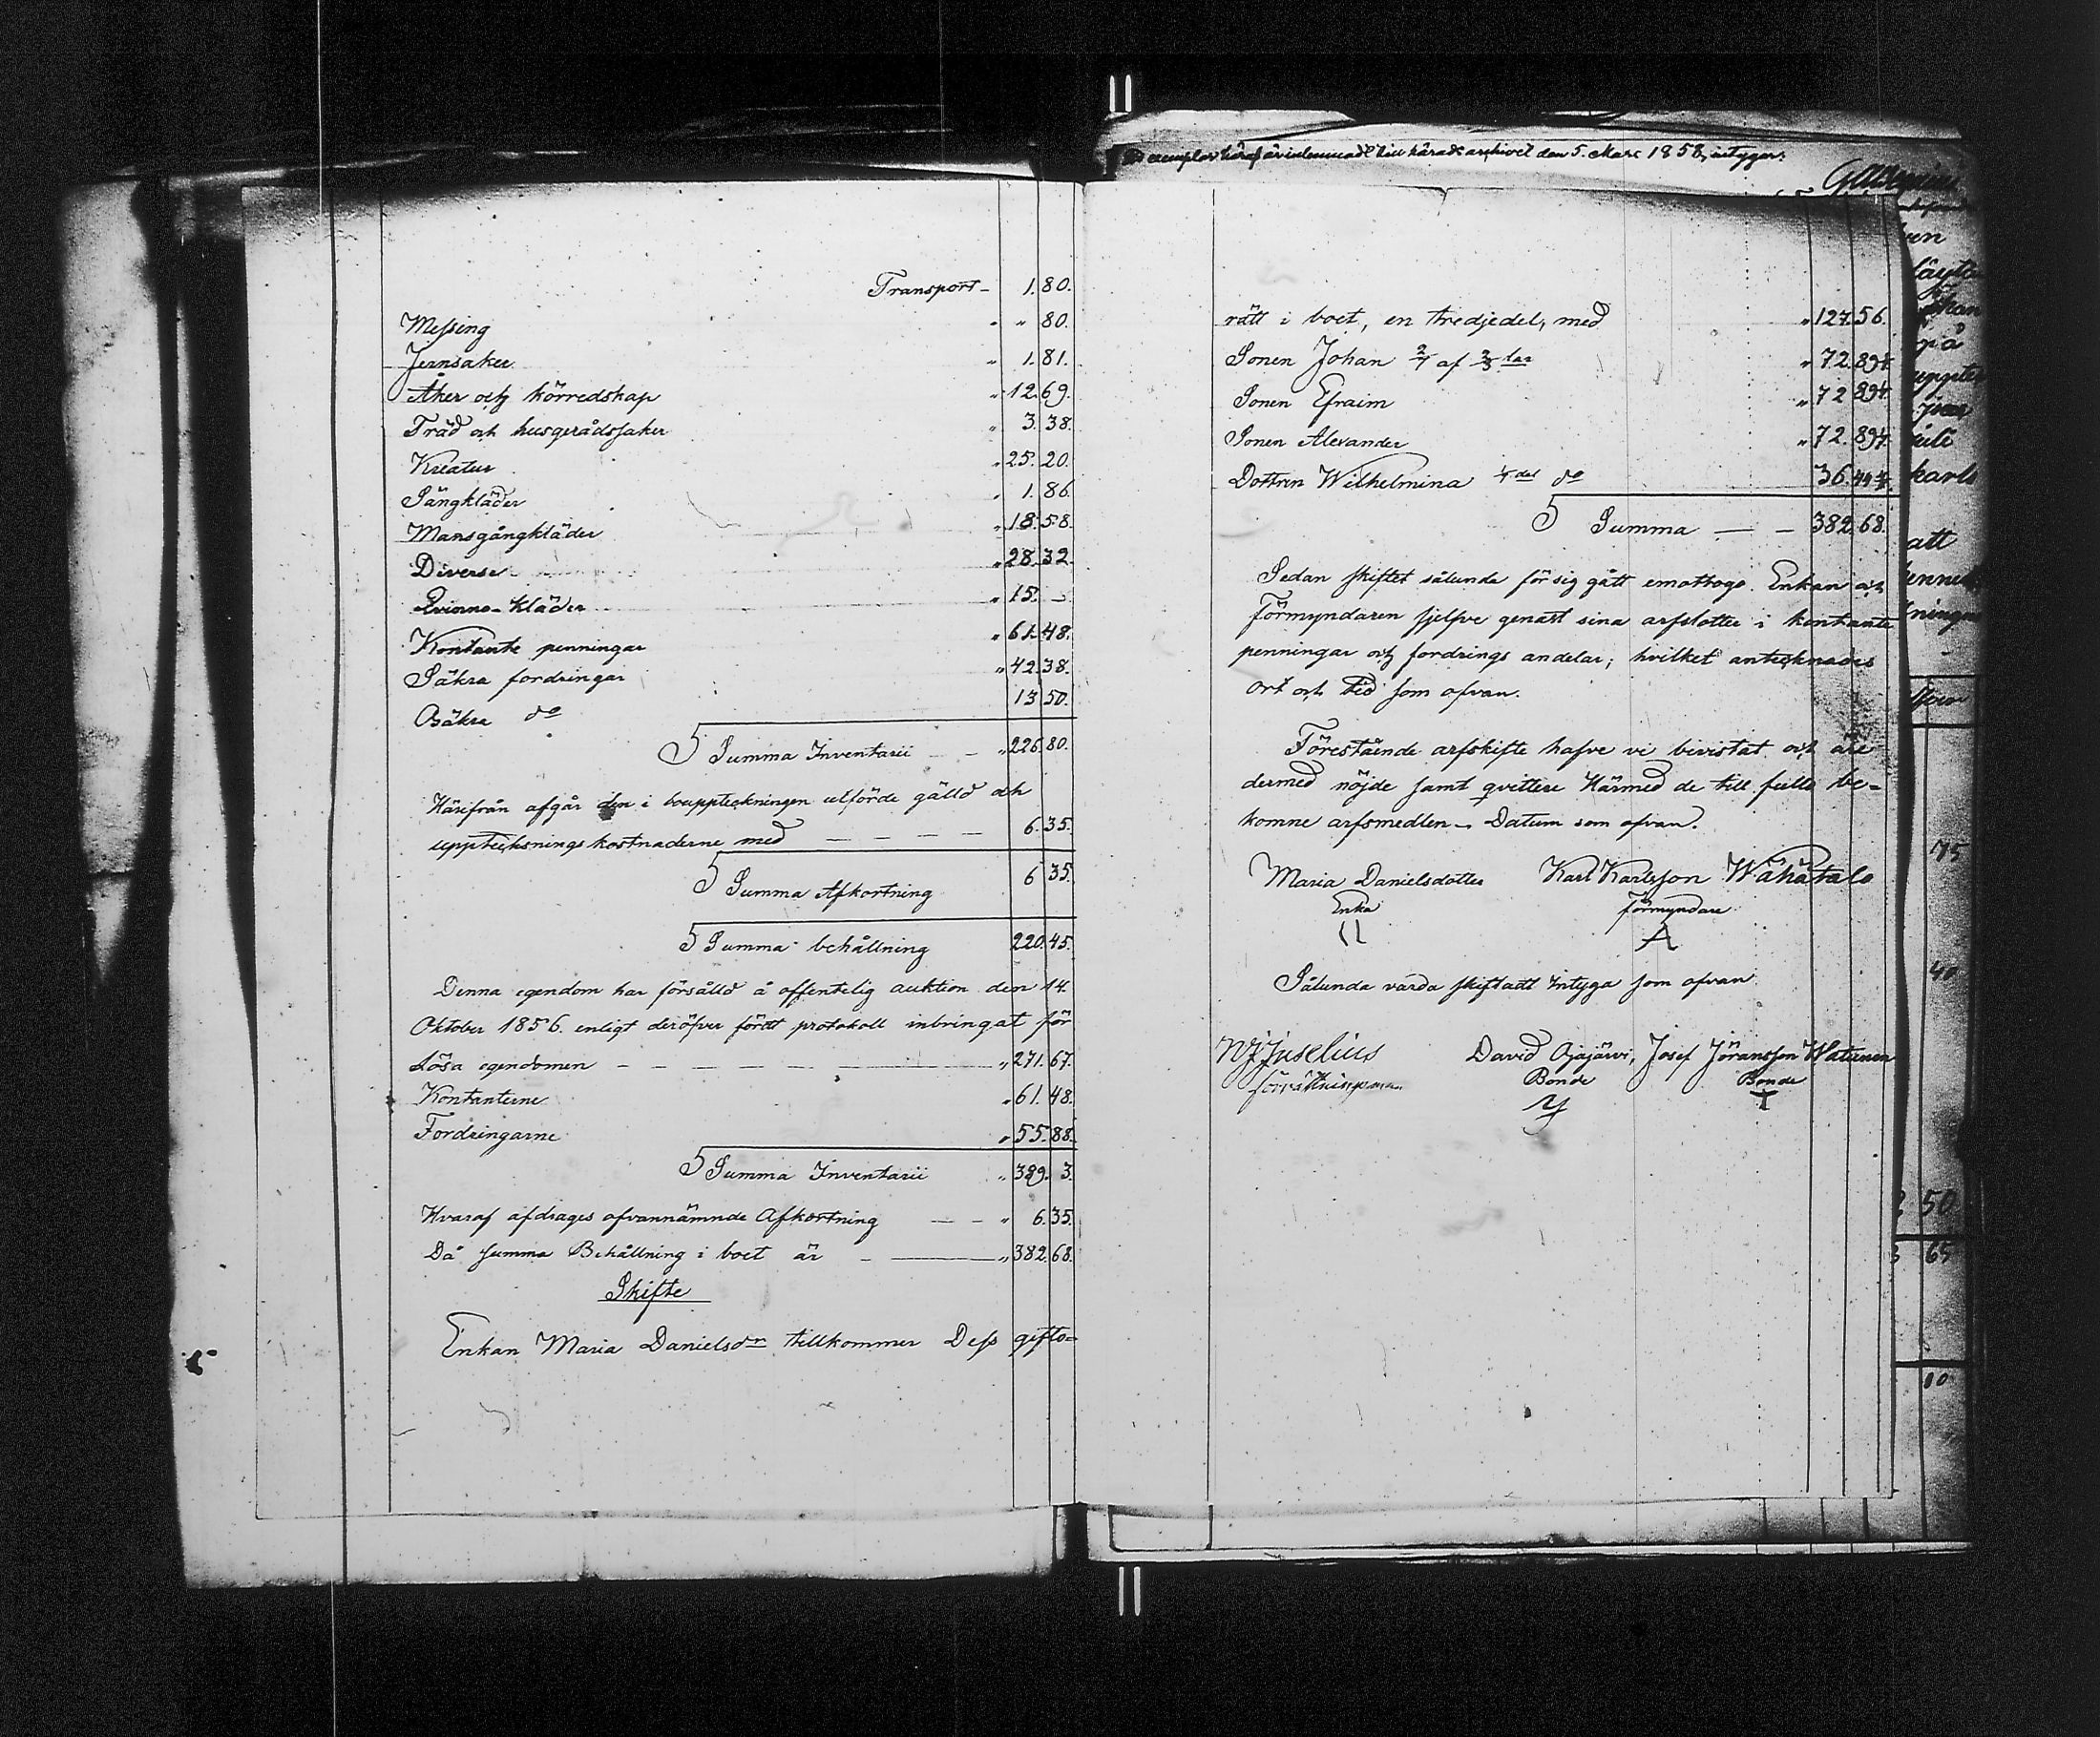 Transport – 1. 80.
Messing " " 80.
Jernsaker " 1. 81.
Åker och körredskap " 12. 69.
Träd och husgerådssaker " 3. 38.
Kreatur " 25. 20.
Sängkläder " 1. 86.
Mansgångkläder " 18. 58.
Diverse " 28. 32.
Qvinno-kläder " 15. –
Kontante penningar " 61. 48.
Säkra fordringar " 42. 38.
Osäkra do 13 50.
Summa Inventarii — " 226. 80.
Härifrån afgår den i bouppteckningen utförde gälld och
uppteckningskostnaderne med — — — — 6. 35.
Summa Afkortning 6 35.
Summa behållning 220. 45.
Denna egendom har försålld å offentelig auktion den 14.
Oktober 1856. enligt deröfver fördt protokoll inbringat för
Lösa egendomen — — — — — " 271. 67.
Kontanterne " 61. 48.
Fordringarne " 55. 88.
Summa Inventarii " 389. 3.
Hvaraf afdrages ofvannämnde Afkortning — — " 6. 35.
Då summa Behållning i boet är — — " 382. 68.
Skifte
Enkan Maria Danielsdr tillkommer Dess gifto=
exemplar häraf är inlemnadt till härads archivet den 5. Mars 1858, intygar:
rätt i boet, en tredjedel, med " 127. 56.
Sonen Johan 2/7 af 2/3 lar " 72. 89 1/7
Sonen Efraim " 72 89 1/7
Sonen Alexander " 72. 89 1/7
Dottren Wilhelmina 1/7 del do 36. 44 4/7
Summa — — 382. 68.
Sedan skiftet sålunda för sig gått emottogo Enkan och
Förmyndaren sjelfve genast sina arfslotter i kontante
penningar och fordrings andelar; hvilket antecknades
ort och tid som ofvan.
Förestående arfskifte hafve vi bivistat och äre
dermed nöjde samt qvittere Härmed de till fullo be=
komne arfsmedlen. Datum som ofvan.
Maria Danielsdotter Karl Karlsson Wähätalo
Enka förmyndare
Sålunda varda skiftadt intyga som ofvan
Juselius David Ojajärvi, Josef Jöransson Watunen
förrättningsman Bonde Bonde